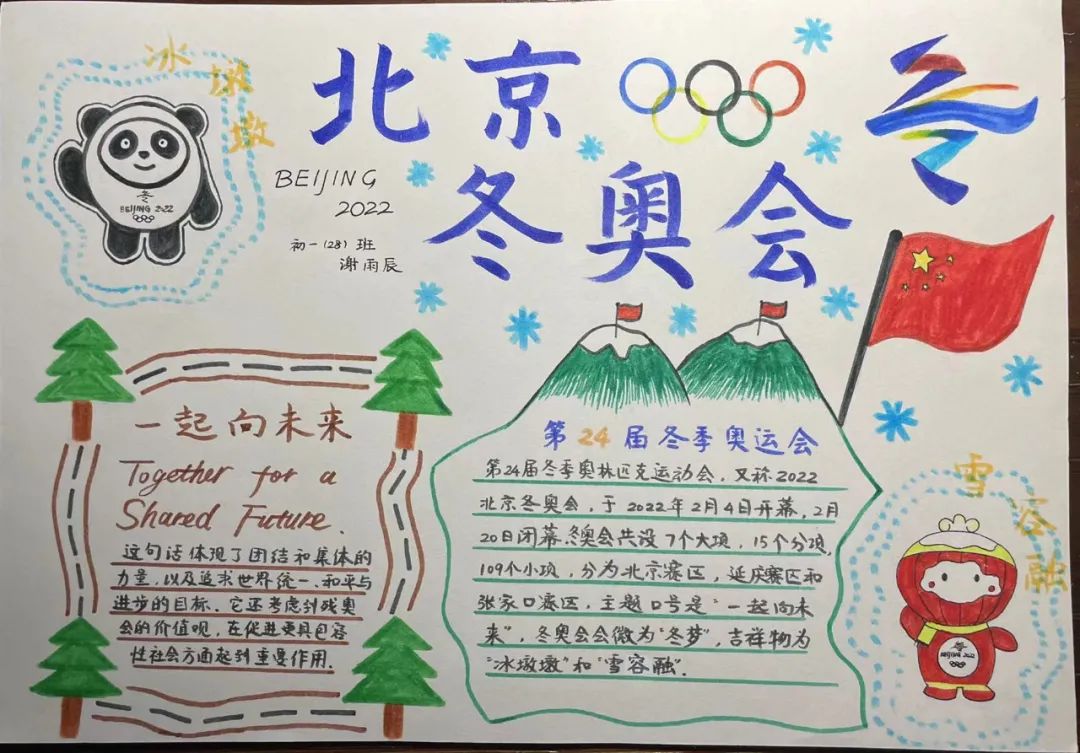 北京
冬奥会
BEIJING
2022
初一(28)班
谢雨辰
冰墩墩
冬
BEIJING 2022
一起向未来
Together for a
Shared Future.
这句话体现了团结和集体的
力量,以及追求世界统一、和平与
进步的目标.它还考虑到残奥
会的价值观,在促进更具包容
性社会方面起到重要作用.
第24届冬季奥运会
第24届冬季奥林匹克运动会,又称2022
北京冬奥会,于2022年2月4日开幕,2月
20日闭幕.冬奥会共设7个大项,15个分项,
109个小项,分为北京赛区,延庆赛区和
张家口赛区,主题口号是“一起向未
来”,冬奥会会徽为“冬梦”,吉祥物为
“冰墩墩”和“雪容融”.
雪容融
BEIJING 2022